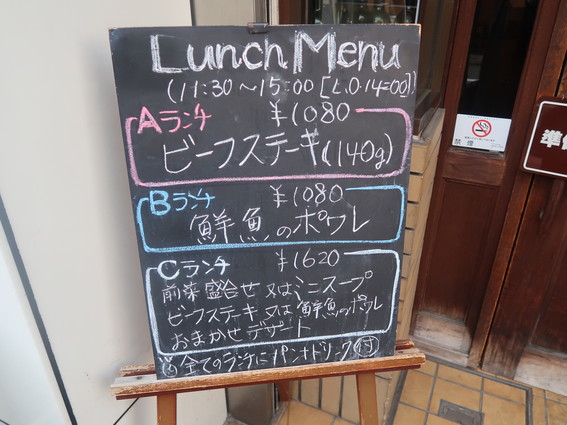 Lunch Menu
(11:30～15:00 [L.O.14:00])
Aランチ ¥1080
ビーフステーキ(140g)
Bランチ ¥1080
鮮魚のポワレ
Cランチ ¥1620
前菜盛合せ又はミニスープ
ビーフステーキ又は鮮魚のポワレ
おまかせデザート
全てのランチにパンナドリンク付
禁煙
準備